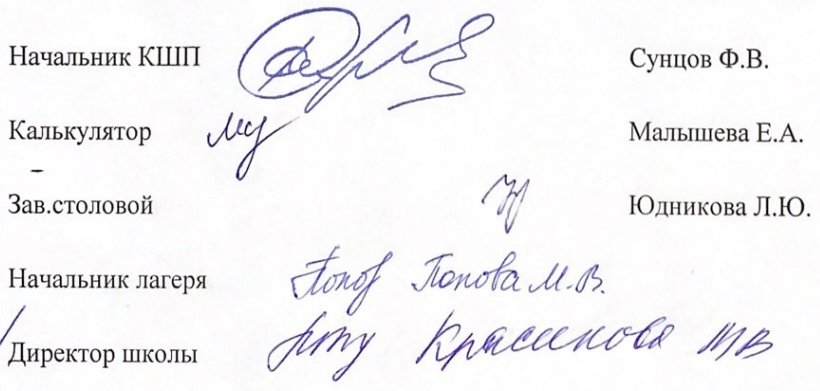 Начальник КШП Сунцов Ф.В.
Калькулятор Малышева Е.А.
Зав.столовой Юдникова Л.Ю.
Начальник лагеря Попова М.В.
Директор школы Красикова ТВ